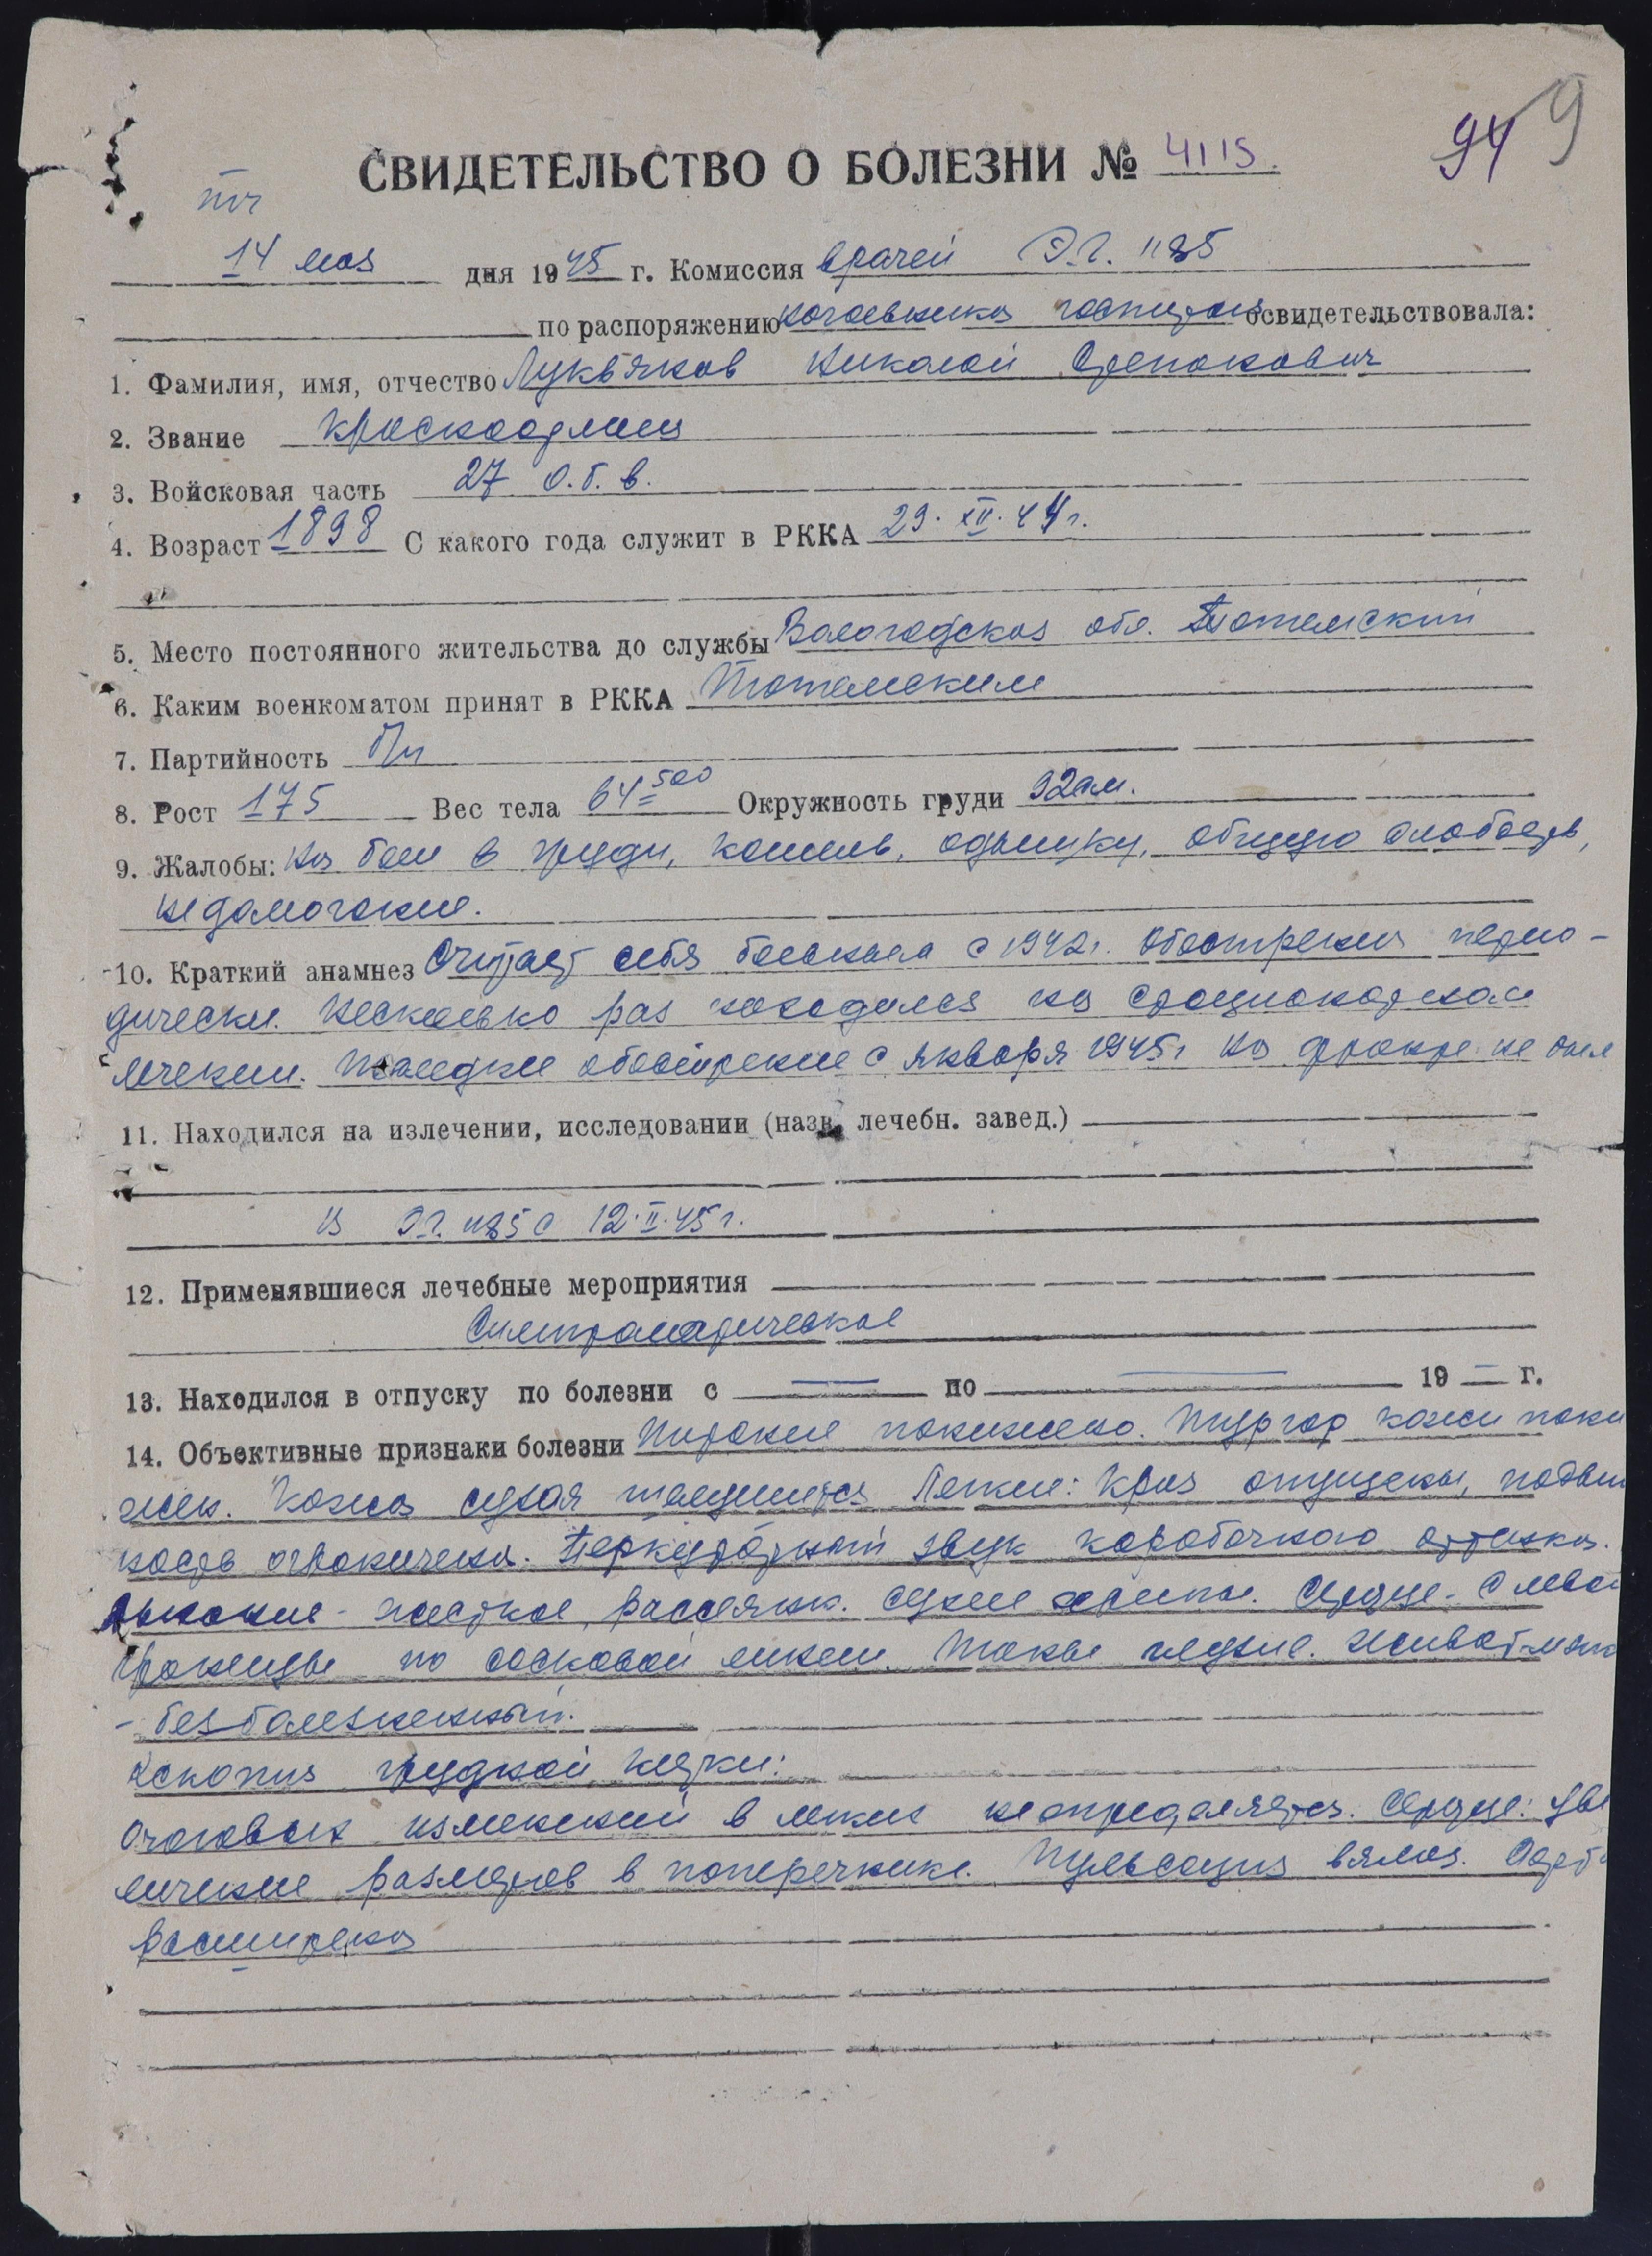 94 9
СВИДЕТЕЛЬСТВО О БОЛЕЗНИ № 4115.
14 мая дня 1945 г. Комиссия врачей Э.Г. 1185
по распоряжению начальника госпиталя освидетельствовала:
1. Фамилия, имя, отчество Луквянов Николай Степанович
2. Звание Красноармеец
3. Войсковая часть 27 о.б.в.
4. Возраст 1898 С какого года служит в РККА 29.XII.44г.
5. Место постоянного жительства до службы Вологодская обл. Тотемский
6. Каким военкоматом принят в РККА Тотемским
7. Партийность б/п
8. Рост 175 Вес тела 64=500 Окружность груди 92см.
9. Жалобы: на боли в груди, кашель, одышку, общую слабость,
недомогание.
10. Краткий анамнез Считает себя больным с 1942г. Обострения перио-
дически. Несколько раз находился на стационарном
лечении. Последнее обострение с января 1945г на фронте не был
11. Находился на излечении, исследовании (назв. лечебн. завед.)
В Э.Г. 1185 с 12.II.45г.
12. Применявшиеся лечебные мероприятия
Симптоматическое
13. Находился в отпуску по болезни с — по — 19 — г.
14. Объективные признаки болезни Питание понижено. Тургор кожи пони
жен. Кожа сухая шелушится Легкие: Края опущены, подвиж
ность ограничена. Перкуторный звук коробочного оттенка.
Дыхание - жесткое, рассеянн. сухие хрипы. Сердце - с левой
границы по сосковой линии. Тоны глухие. Живот-мягк
- безболезненный.
Скопия грудной клетки:
Очаговых изменений в легких не определяется. Сердце: уве
личение размеров в поперечнике. Пульсация вялая. Аорта
расширена